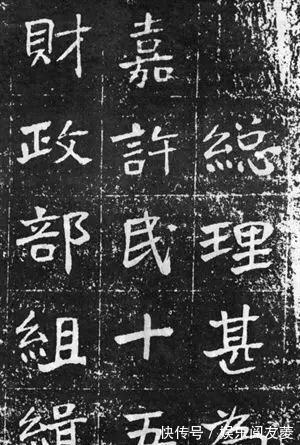 總理甚
嘉許民十五
財政部組緝
快传号/娱乐阅友菱